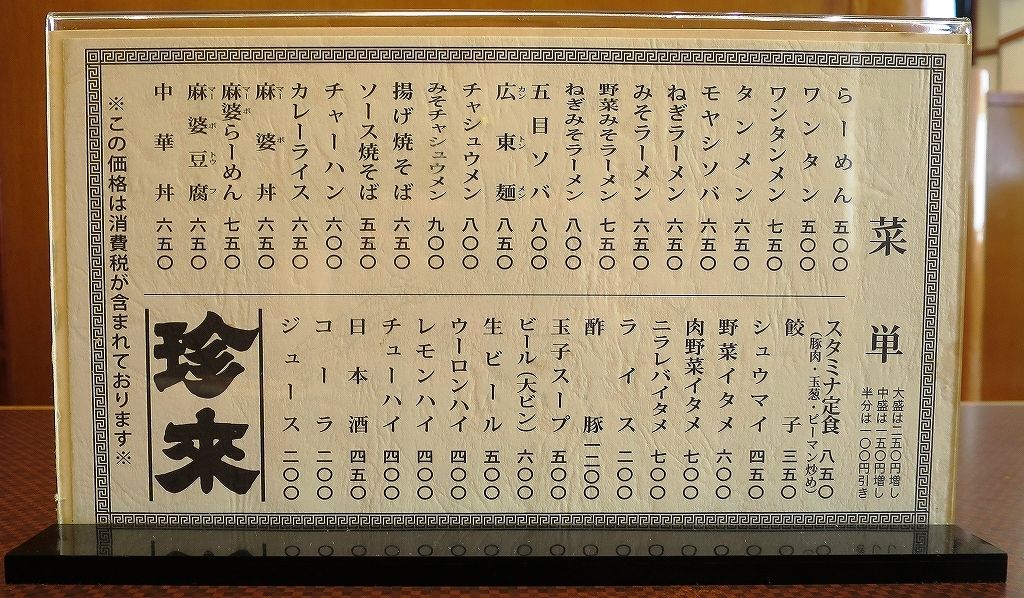 菜単
大盛は二五〇円増し
中盛は一五〇円増し
半分は一〇〇円引き
らーめん 五〇〇
ワンタン 五〇〇
ワンタンメン 七五〇
タンメン 六五〇
モヤシソバ 六五〇
ねぎラーメン 六五〇
みそラーメン 六五〇
野菜みそラーメン 七五〇
ねぎみそラーメン 八〇〇
五目ソバ 八〇〇
広東麺 八五〇
カントンメン
チャシュウメン 八〇〇
みそチャシュウメン 九〇〇
揚げ焼そば 六五〇
ソース焼そば 五五〇
チャーハン 六〇〇
カレーライス 六五〇
麻婆丼 六五〇
マーボ
麻婆らーめん 七五〇
マーボ
麻婆豆腐 六五〇
マーボトウフ
中華丼 六五〇
スタミナ定食 八五〇
(豚肉・玉葱・ピーマン炒め)
餃子 三五〇
シュウマイ 四五〇
野菜イタメ 六〇〇
肉野菜イタメ 七〇〇
ニラレバイタメ 七〇〇
ライス 二〇〇
酢豚 一二〇〇
玉子スープ 五〇〇
ビール(大ビン) 六〇〇
生ビール 五〇〇
ウーロンハイ 四〇〇
レモンハイ 四〇〇
チューハイ 四〇〇
日本酒 四五〇
コーラ 二〇〇
ジュース 二〇〇
珍来
※この価格は消費税が含まれております※